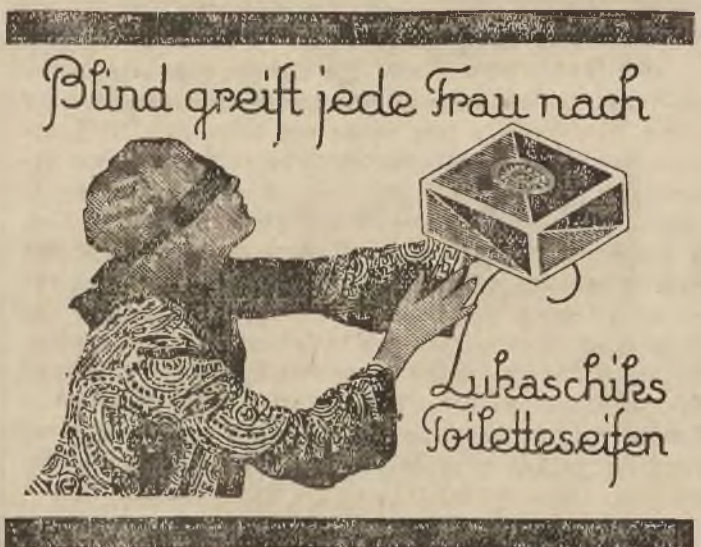 Blind greift jede Frau nach
Lukaschiks
Toiletteseifen